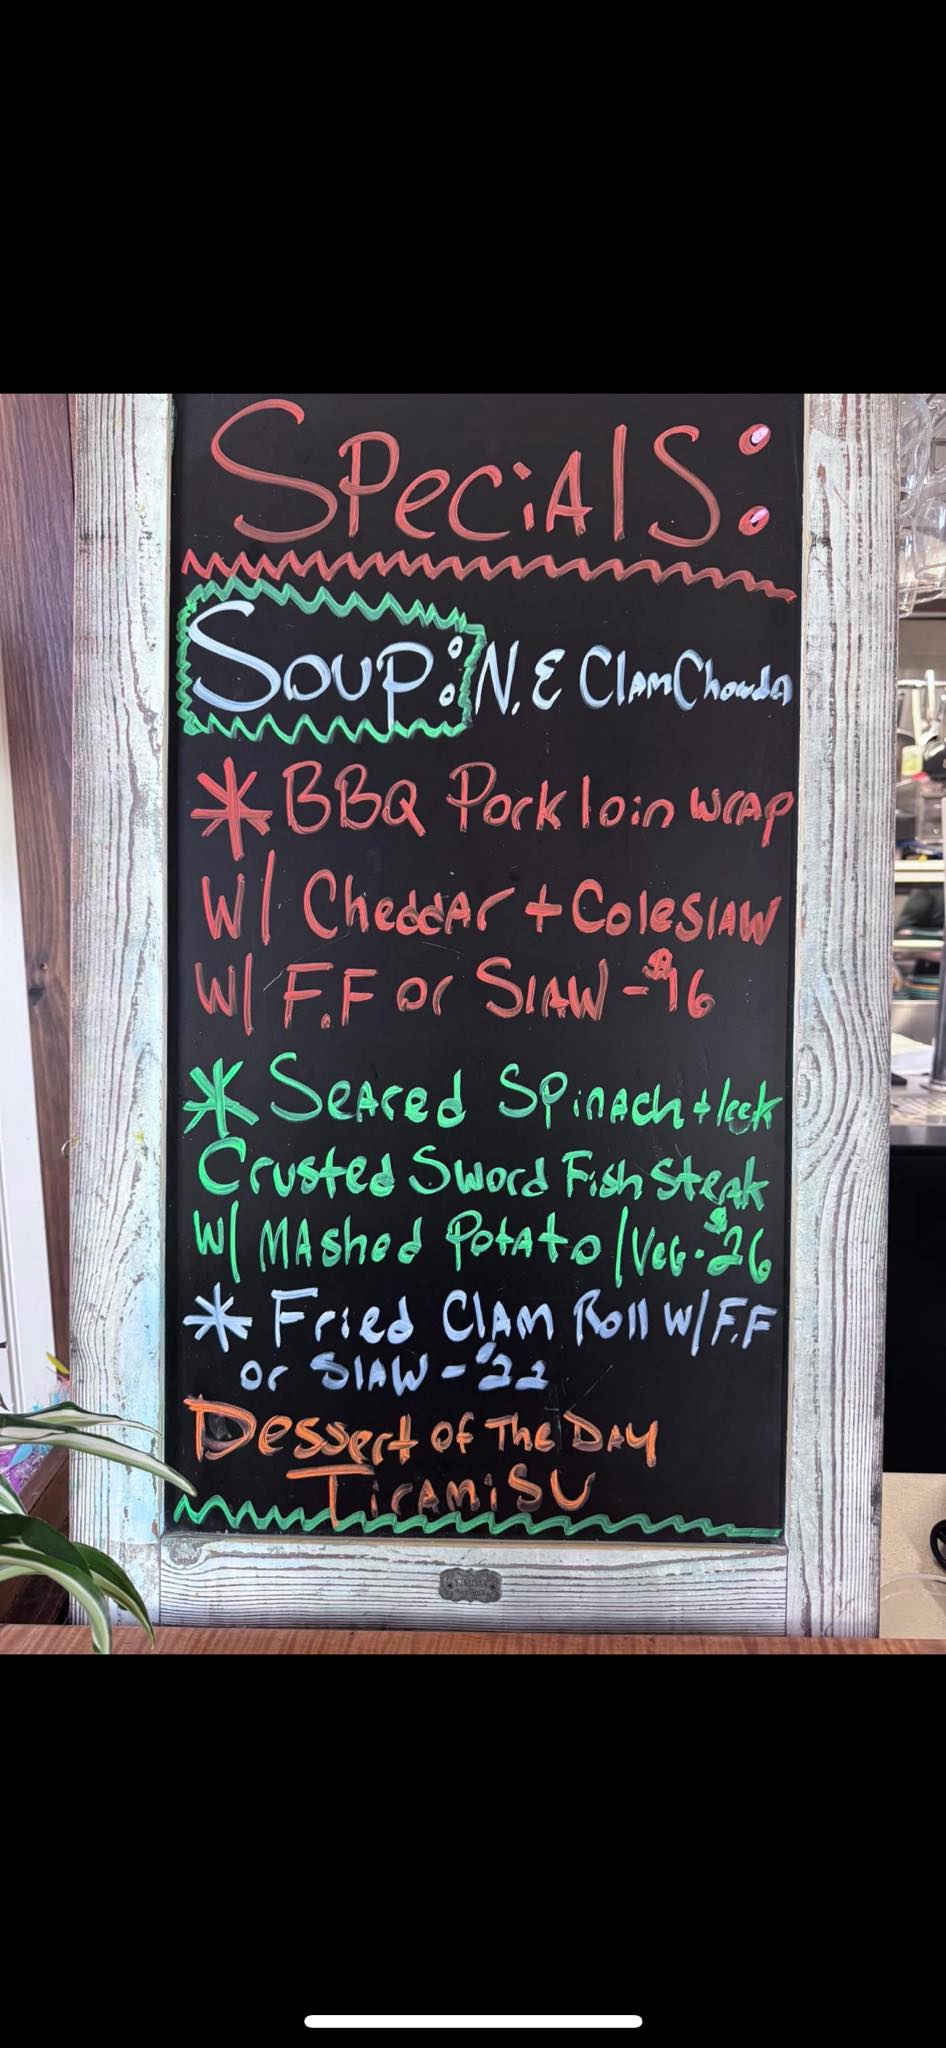 SPeciAlS:
Soup: N.E ClAm Chowda
* BBQ Pork loin wrap
W/ CheddAr + ColeslAw
W/ F.F or SlAW - $16
* SeAred SpinAch + leek
Crusted Sword Fish SteAk
W/ MAshed PotAto / Veg - $26
* Fried ClAm Roll W/ F.F
or SlAW - $22
Dessert of The DAy
TirAmiSU